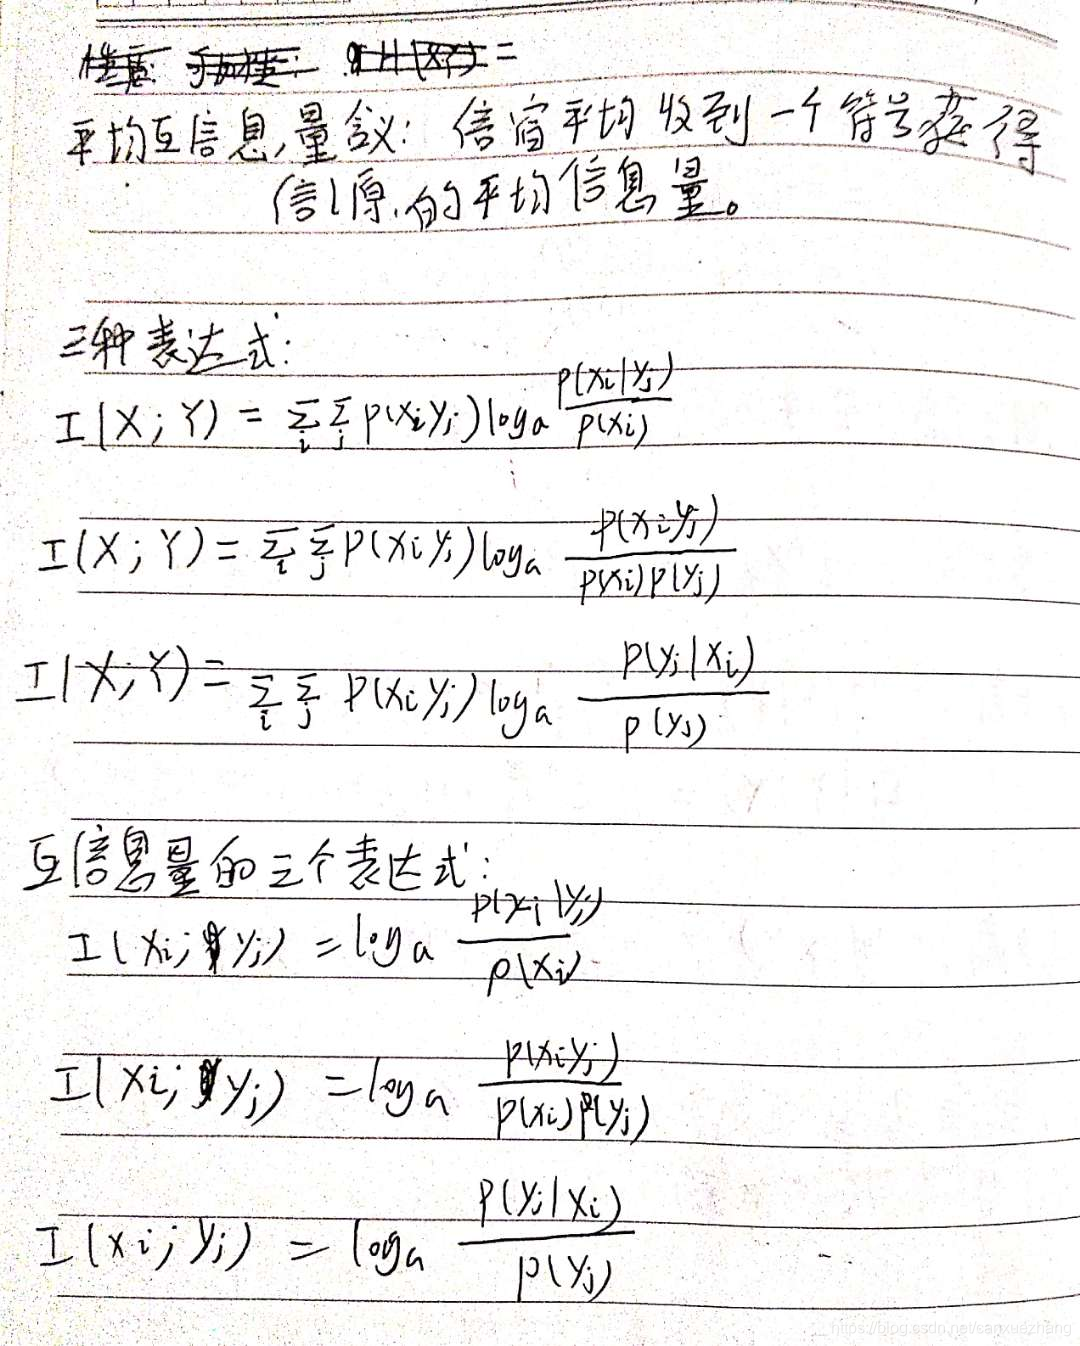 平均互信息量含义: 信宿平均收到一个符号获得
信源的平均信息量。
三种表达式:
I(X;Y) = Σi Σj p(xiyj) loga p(xi|yj)/p(xi)
I(X;Y) = Σi Σj P(xiyj) loga p(xiyj)/p(xi)p(yj)
I(X;Y) = Σi Σj P(xiyj) loga p(yj|xi)/p(yj)
互信息量的三个表达式:
I(xi;yj) = loga p(xi|yj)/p(xi)
I(xi;yj) = loga p(xiyj)/p(xi)p(yj)
I(xi;yj) = loga p(yj|xi)/p(yj)
https://blog.csdn.net/sanxuezhang